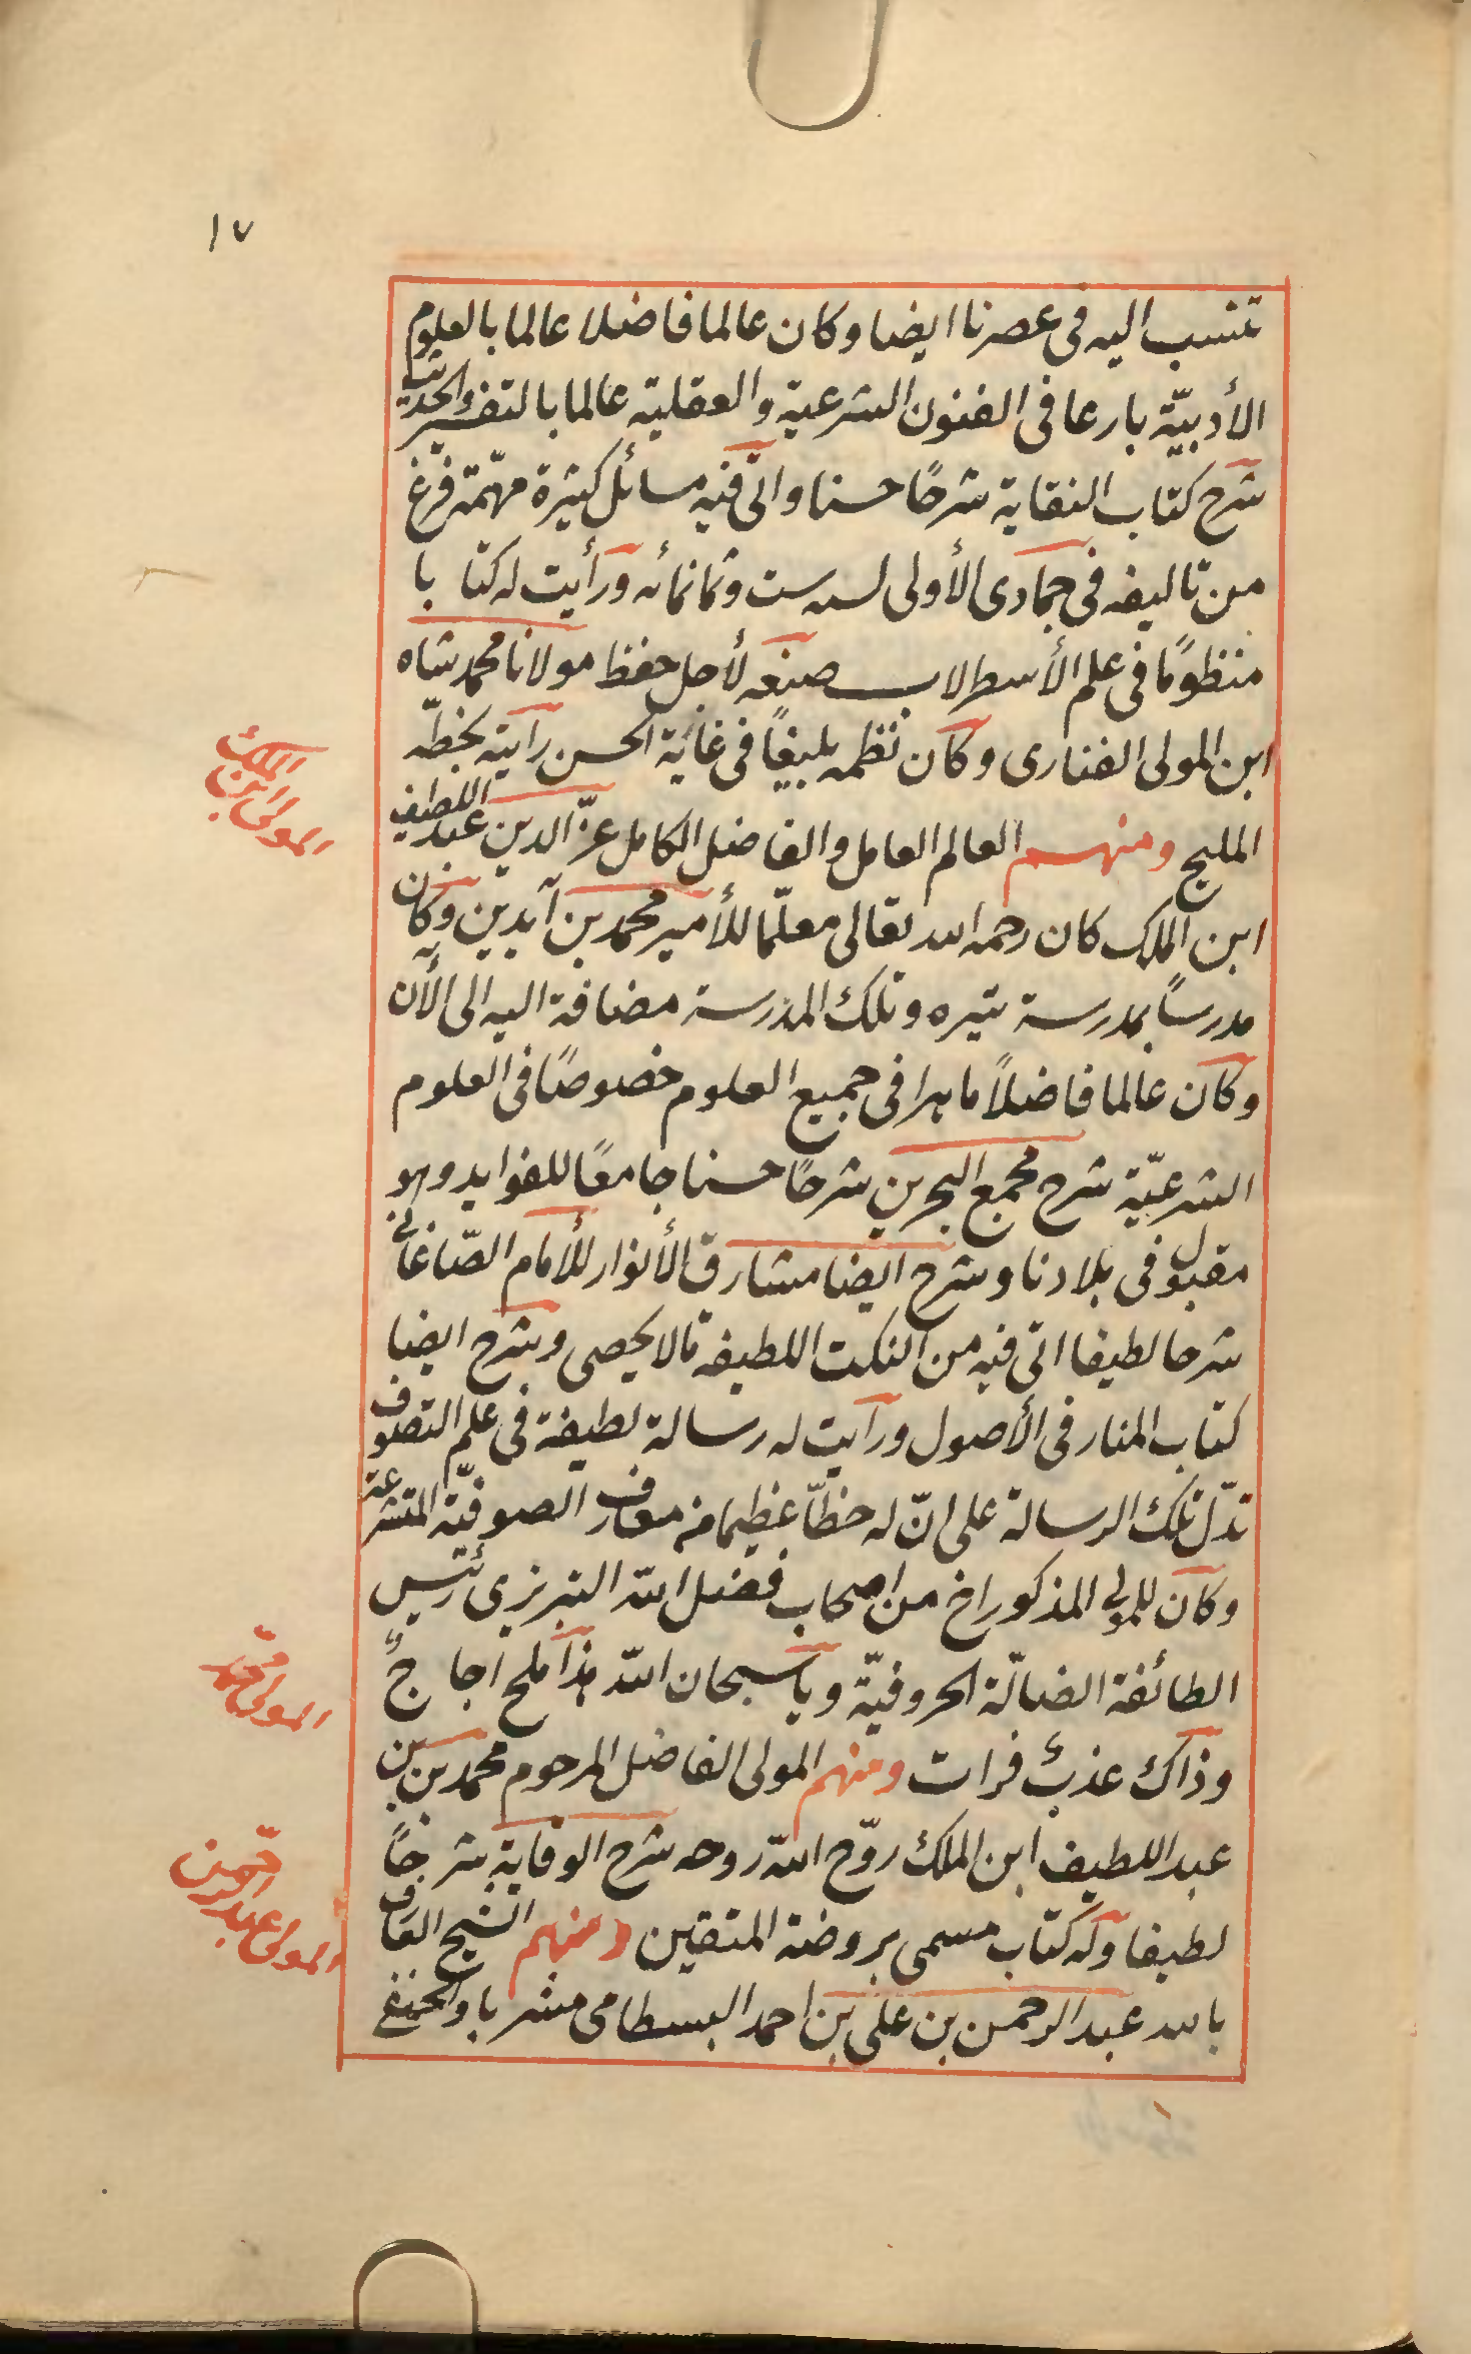 ١٧
تنسب اليه فى عصرنا ايضا وكان عالما فاضلا عالما بالعلوم
الأدبيّة بارعا فى الفنون الشرعية والعقلية عالما بالتفسير والحديث
شرح كتاب النقاية شرحًا حسنا واتى فيه مسائل كثيرة مهّمة فرغ
من تاليفه فى جمادى الأولى لسنه ست وثمانمائه ورأيت له كتابا
منظومًا فى علم الأسطرلاب صنعه لأجل حفظ مولانا محمد شاه
ابن المولى الفنارى وكان نظمه بليغًا فى غاية الحسن رايته بخطّه
المليح ومنهم العالم العامل والفاضل الكامل عزّ الدين عبد اللطيف
ابن الملك كان رحمه الله تعالى معلّما للأمير محمد بن آيدين وكان
مدرسًا بمدرسة تيره وتلك المدرسة مضافة اليه الى الأن
وكان عالما فاضلاً ماهرا فى جميع العلوم خصوصًا فى العلوم
الشرعيّة شرح مجمع البحرين شرحًا حسنا جامعًا للفوايد وهو
مقبول فى بلادنا وشرح ايضا مشارق الأنوار للأمام الصّاغانى
شرحا لطيفا اتى فيه من النكت اللطيفه ما لا يحصى وشرح ايضا
كتاب المنار فى الأصول ورأيت له رسالة لطيفة فى علم التصوف
تدّل تلك الرسالة على انّ له حظّا عظيما من معارف الصوفيّة المتشرعة
وكان للمولى المذكور اخ من اصحاب فضل الله التبريزى رئيس
الطائفة الضالّة الحروفيّة ويا سبحان الله هذا ملح اجاجٌ
وذاك عذبٌ فرات ومنهم المولى الفاضل المرحوم محمد بن
عبد اللطيف ابن الملك روّح الله روحه شرح الوقاية شرحًا
لطيفا وله كتاب مسمى بروضة المتقين ومنهم الشيخ العارف
بالله عبد الرحمن بن على بن احمد البسطامى مشربا والحنفى
المولى ابن الملك
المولى محمّد
المولى عبد الرحمن